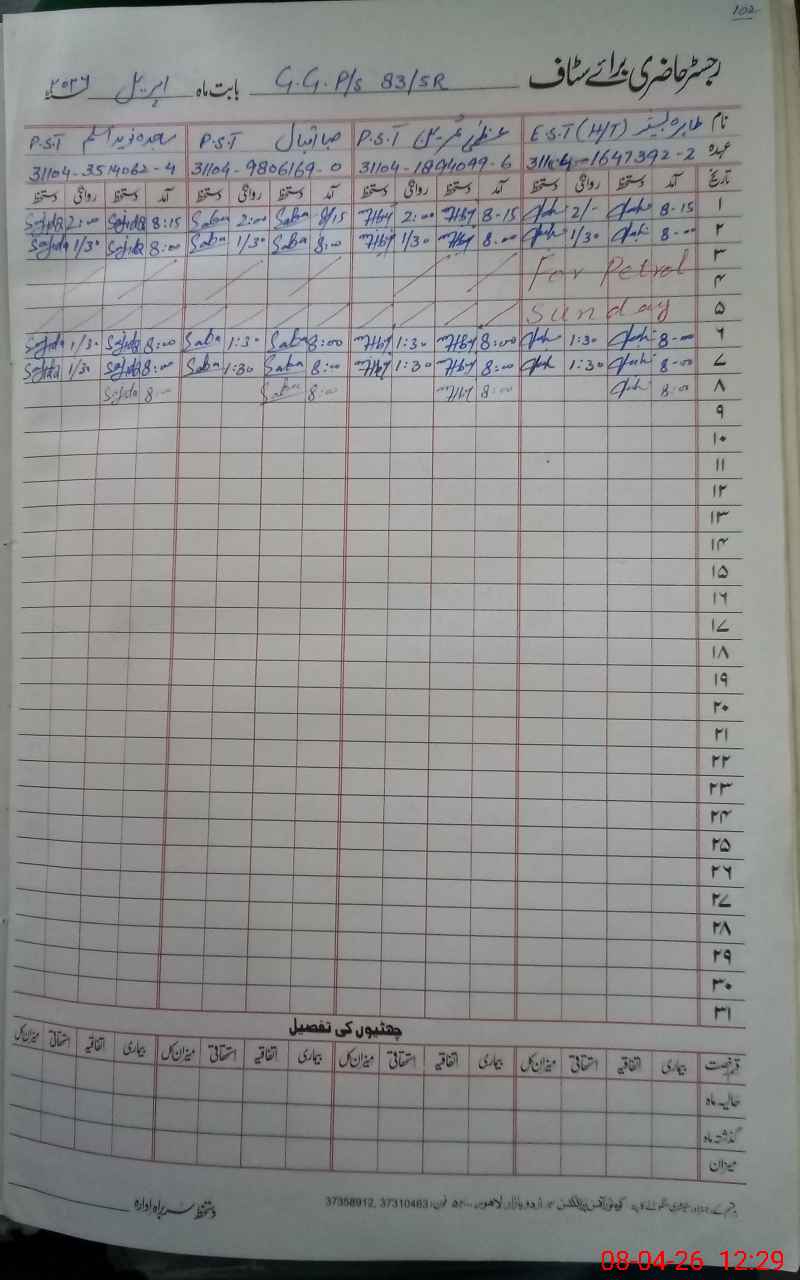 102
رجسٹر حاضری برائے سٹاف G.G.P/S 83/5R بابت ماہ اپریل ۲۰۲۶ء
نام طاہرہ E.S.T (H/T) عظمیٰ P.S.T صبا اقبال P.S.T ساجدہ نوید اسلم P.S.T
عہدہ 31104-1647392-2 31104-1894099-6 31104-9806169-0 31104-3514062-4
تاریخ آمد دستخط روانگی دستخط آمد دستخط روانگی دستخط آمد دستخط روانگی دستخط آمد دستخط روانگی دستخط
۱ 8-15 2/- 8-15 2:00 8/15 Saba 2:00 Saba 8:15 Sajida 2:00 Sajida
۲ 8-00 1/30 8:00 1/30 8:00 Saba 1/30 Saba 8:00 Sajida 1/30 Sajida
۳ For Petrol
۴
۵ Sunday
۶ 8-00 1:30 8:00 1:30 8:00 Saba 1:30 Saba 8:00 Sajida 1/30 Sajida
۷ 8-00 1:30 8:00 1:30 8:00 Saba 1:30 Saba 8:00 Sajida 1/30 Sajida
۸ 8:00 8:00 8:00 Saba 8:00 Sajida
۹
۱۰
۱۱
۱۲
۱۳
۱۴
۱۵
۱۶
۱۷
۱۸
۱۹
۲۰
۲۱
۲۲
۲۳
۲۴
۲۵
۲۶
۲۷
۲۸
۲۹
۳۰
۳۱
چھٹیوں کی تفصیل
قسم رخصت بیماری اتفاقیہ استحقاقی میزان کل بیماری اتفاقیہ استحقاقی میزان کل بیماری اتفاقیہ استحقاقی میزان کل بیماری اتفاقیہ استحقاقی میزان کل
حالیہ ماہ
گذشتہ ماہ
میزان
اردو بازار لاہور فون: 37358912, 37310463
دستخط سربراہ ادارہ
08-04-26 12:29